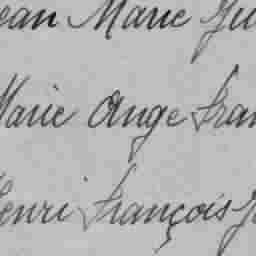 ean Marie Ju
Marie Ange Fran
Henri François J